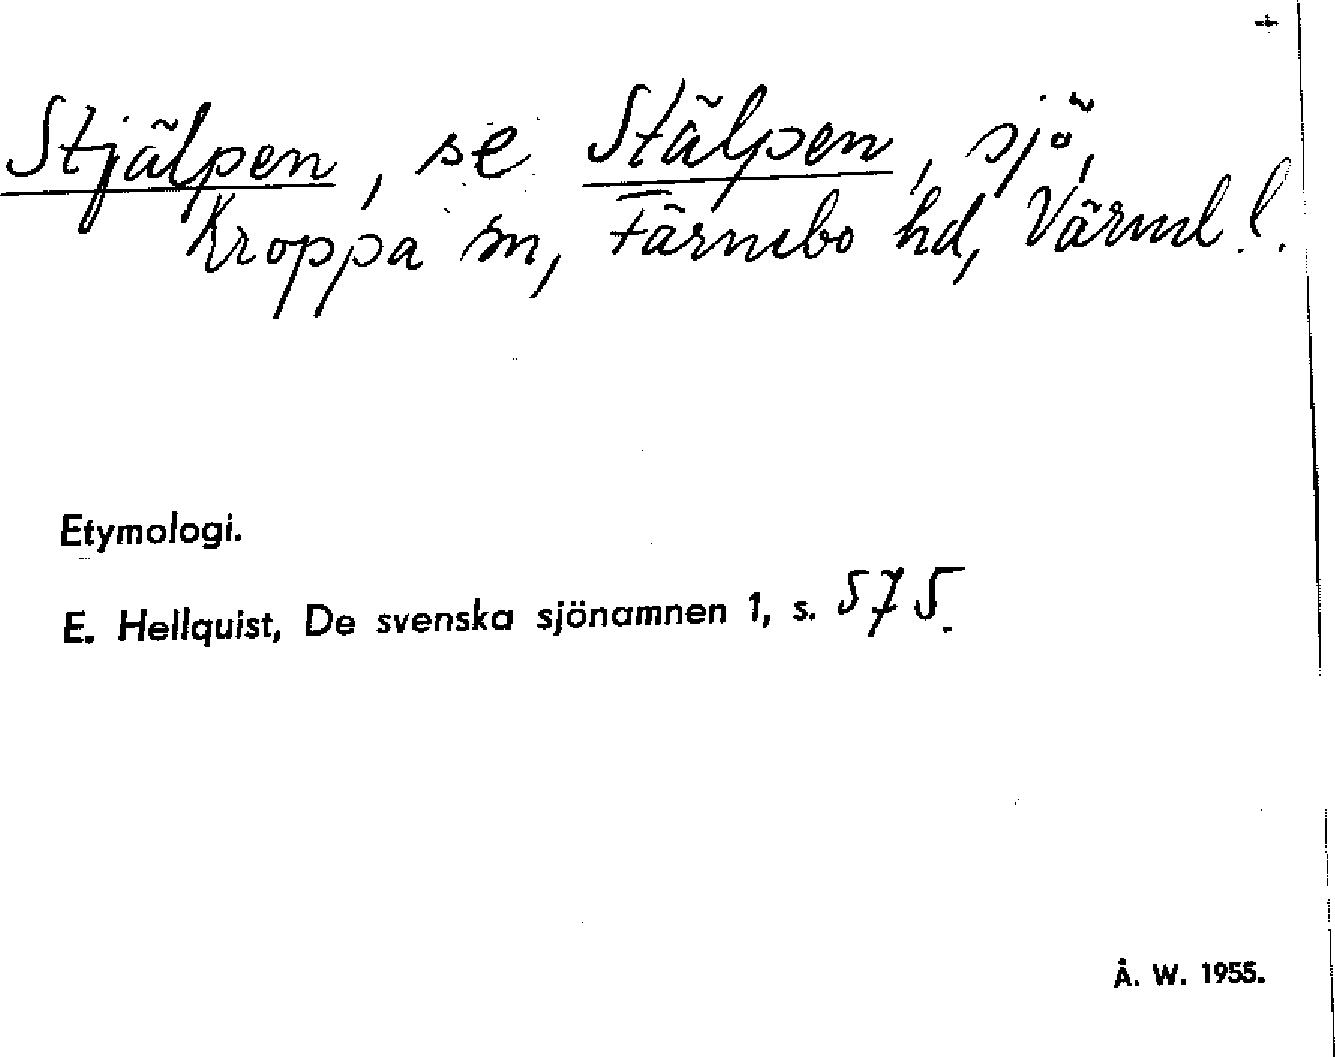 Stjälpen, se Stälpen, sjö,
Kroppa sn, Färnebo hd, Värml. l.
Etymologi.
E. Hellquist, De svenska sjönamnen 1, s. 575.
Å. W. 1955.